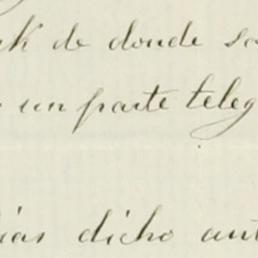 rk de donde sa
un parte teleg
ias dicho ant